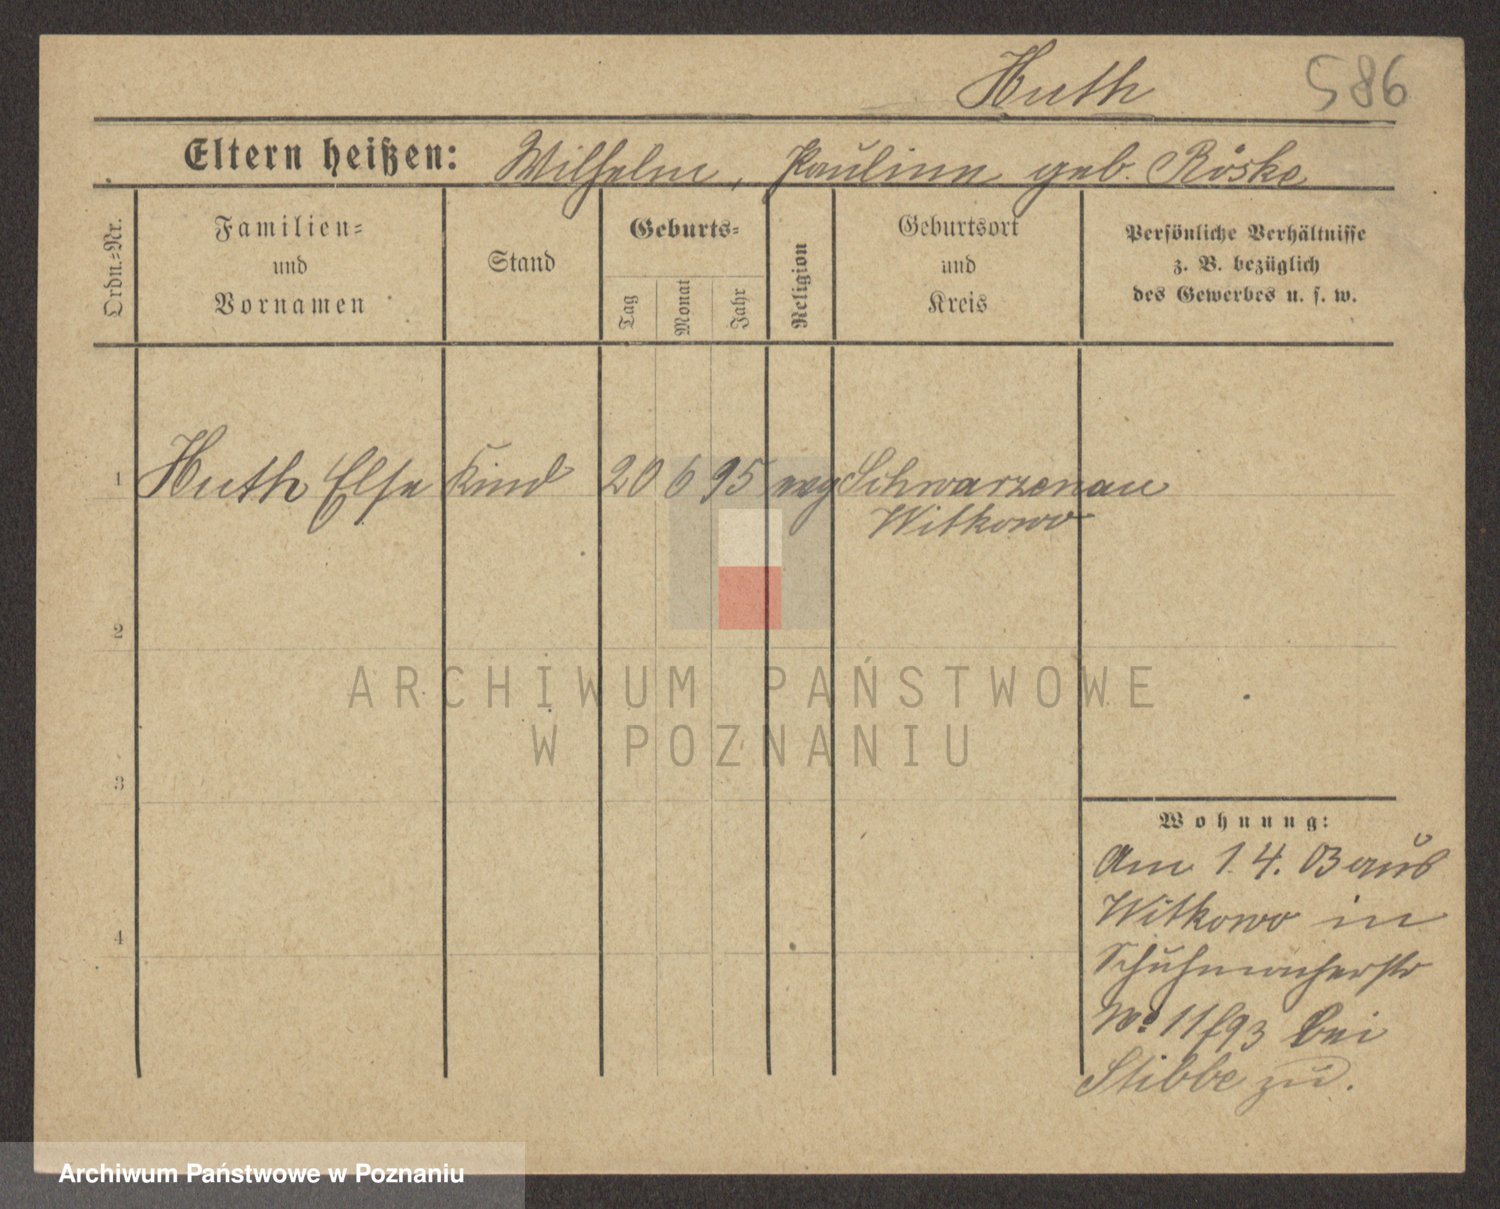 Huth 586
Eltern heißen: Wilhelm, Pauline geb. Röske
Ordn.-Nr.
Familien-
und
Vornamen
Stand
Geburts-
Tag
Monat
Jahr
Religion
Geburtsort
und
Kreis
Persönliche Verhältnisse
z. B. bezüglich
des Gewerbes u. s. w.
1 Huth Else Kind 20 6 95 evg Schwarzenau
Witkowo
2
3
4
Wohnung:
Am 1.4.03 aus
Witkowo in
Schuhmacherstr
No 11/93 bei
Stibbe zu.
ARCHIWUM PAŃSTWOWE
W POZNANIU
Archiwum Państwowe w Poznaniu